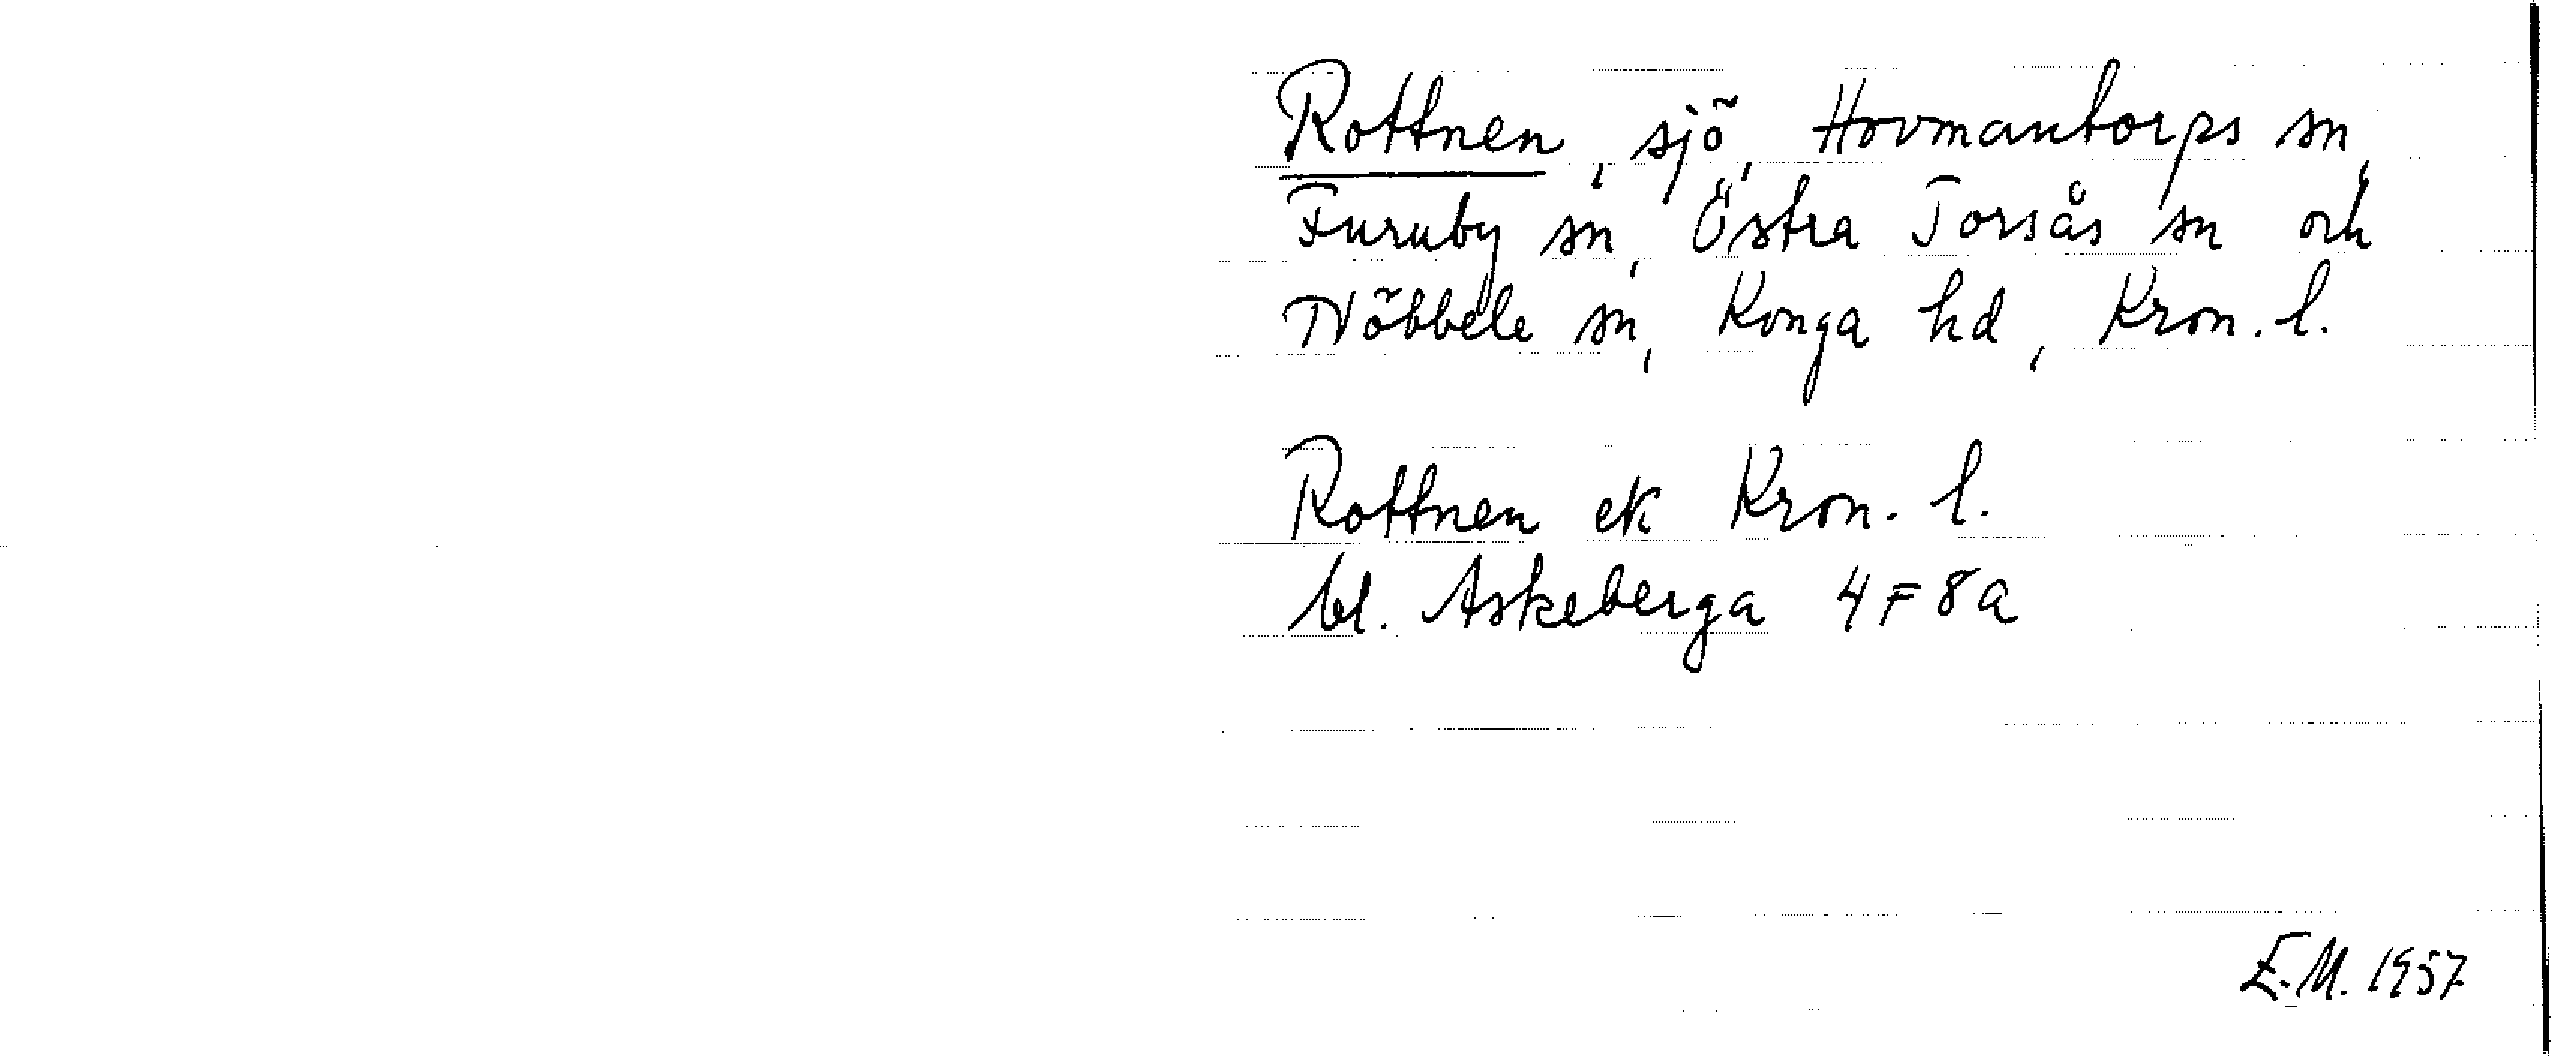 Rottnen, sjö, Hovmantorps sn,
Furuby sn, Östra Torsås sn och
Nöbbele sn, Konga hd, Kron. l.
Rottnen ek Kron. l.
bl. Askeberga 4F8a
E.M. 1957